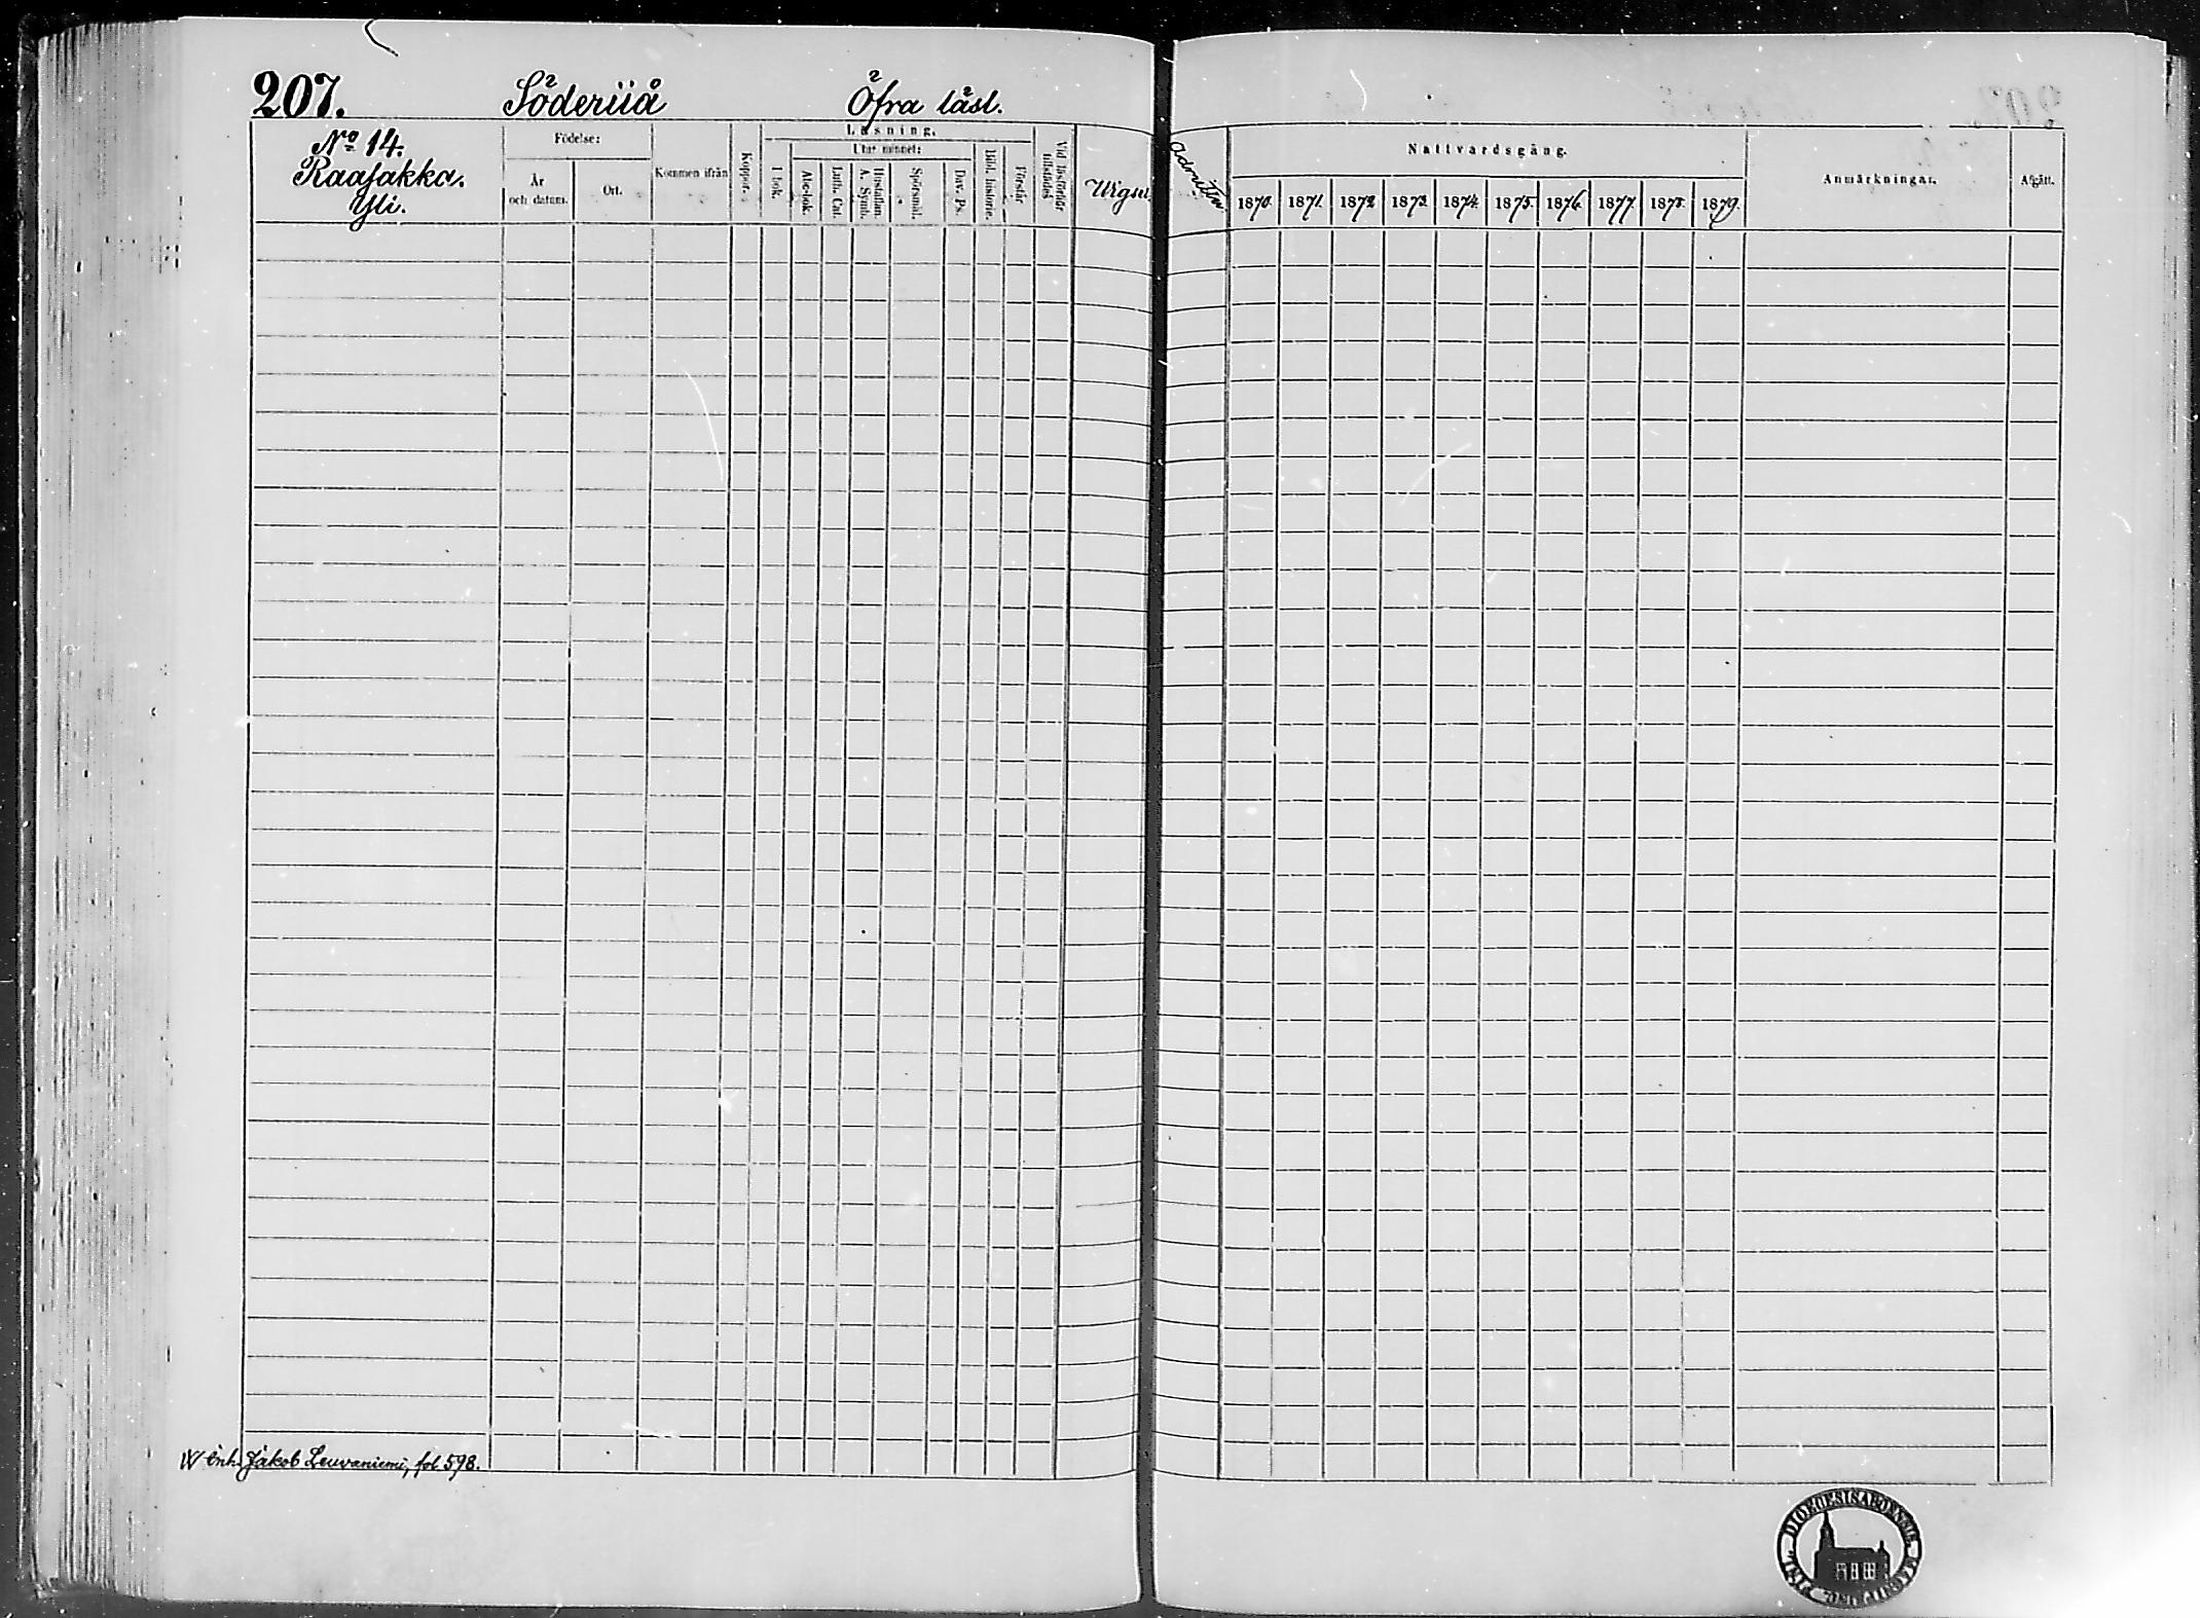 207. Söderuå Öfra låsl.
No 14.
Raajakka.
Yli.
Födelse:
År och datum.
Ort.
Kommen ifrån
Koppor.
Läsning.
I bok.
Utur minnet:
Abc-bok.
Luth. Cat.
Hustaflan. A. Symb.
Spörsmål.
Dav. Ps.
Bibl. historie.
Förstår
Vid läsförhör tillstädes
Nattvardsgång.
1870. 1871. 1872. 1873. 1874. 1875. 1876. 1877. 1878. 1879.
Anmärkningar.
Afgått.
Enh. Jakob Leuvaniemi, fol 598.